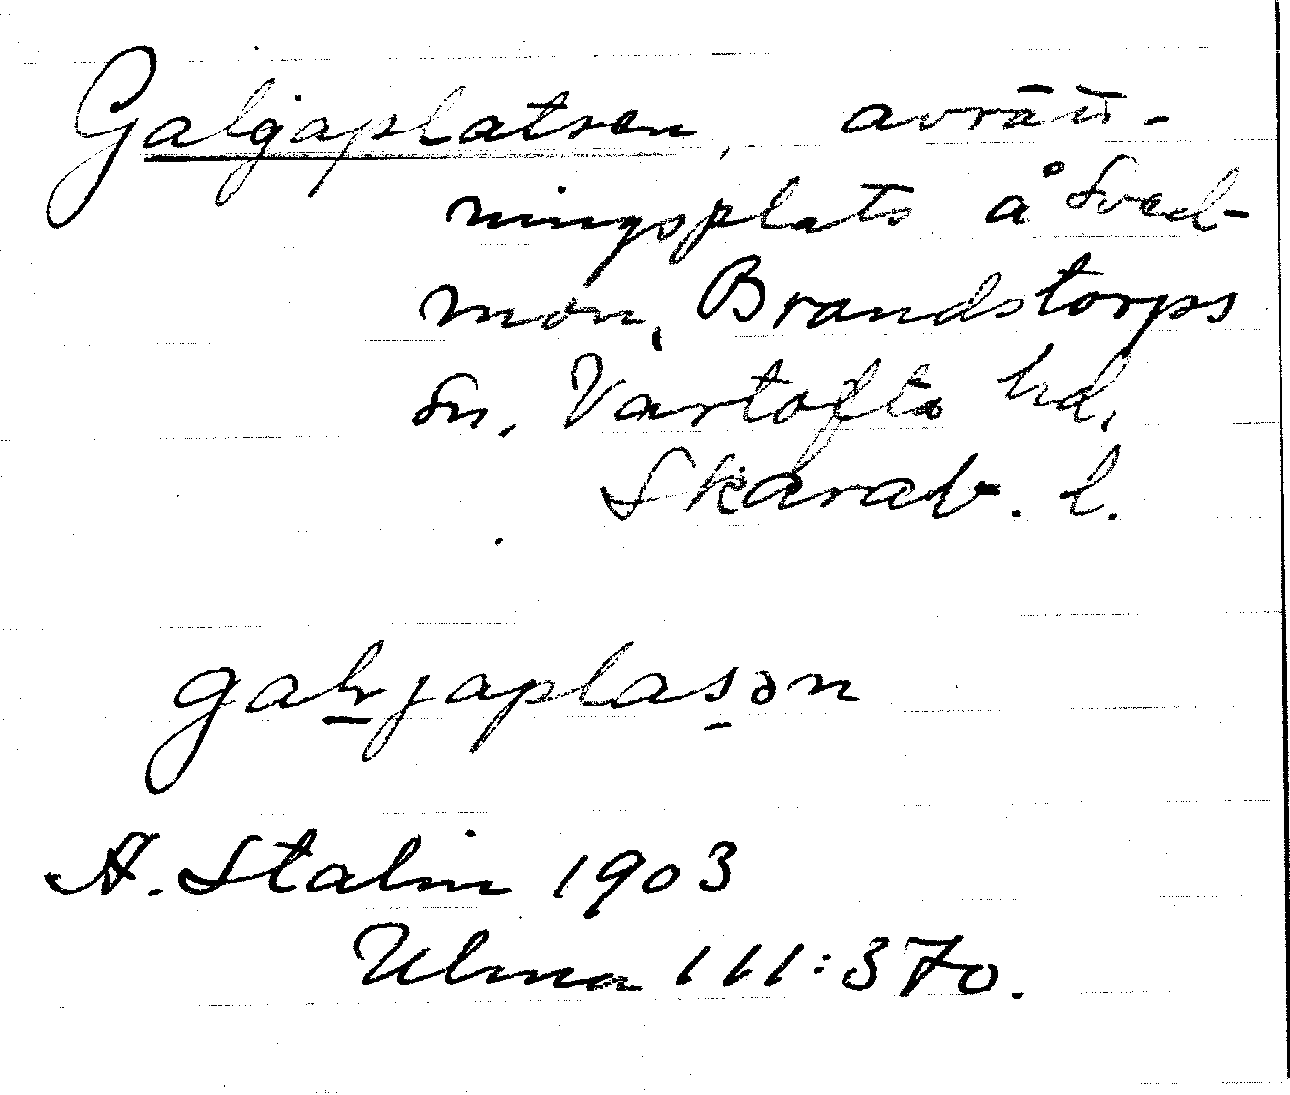 Galgaplatsen, avrätt-
ningsplats å Sved-
mon, Brandstorps
sn. Vartofta hd,
Skarab. l.
galrjaplasən
A. Stalin 1903
Ulma 111:370.